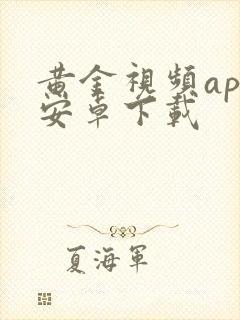 黃金視頻ap
安卓下載
夏海軍